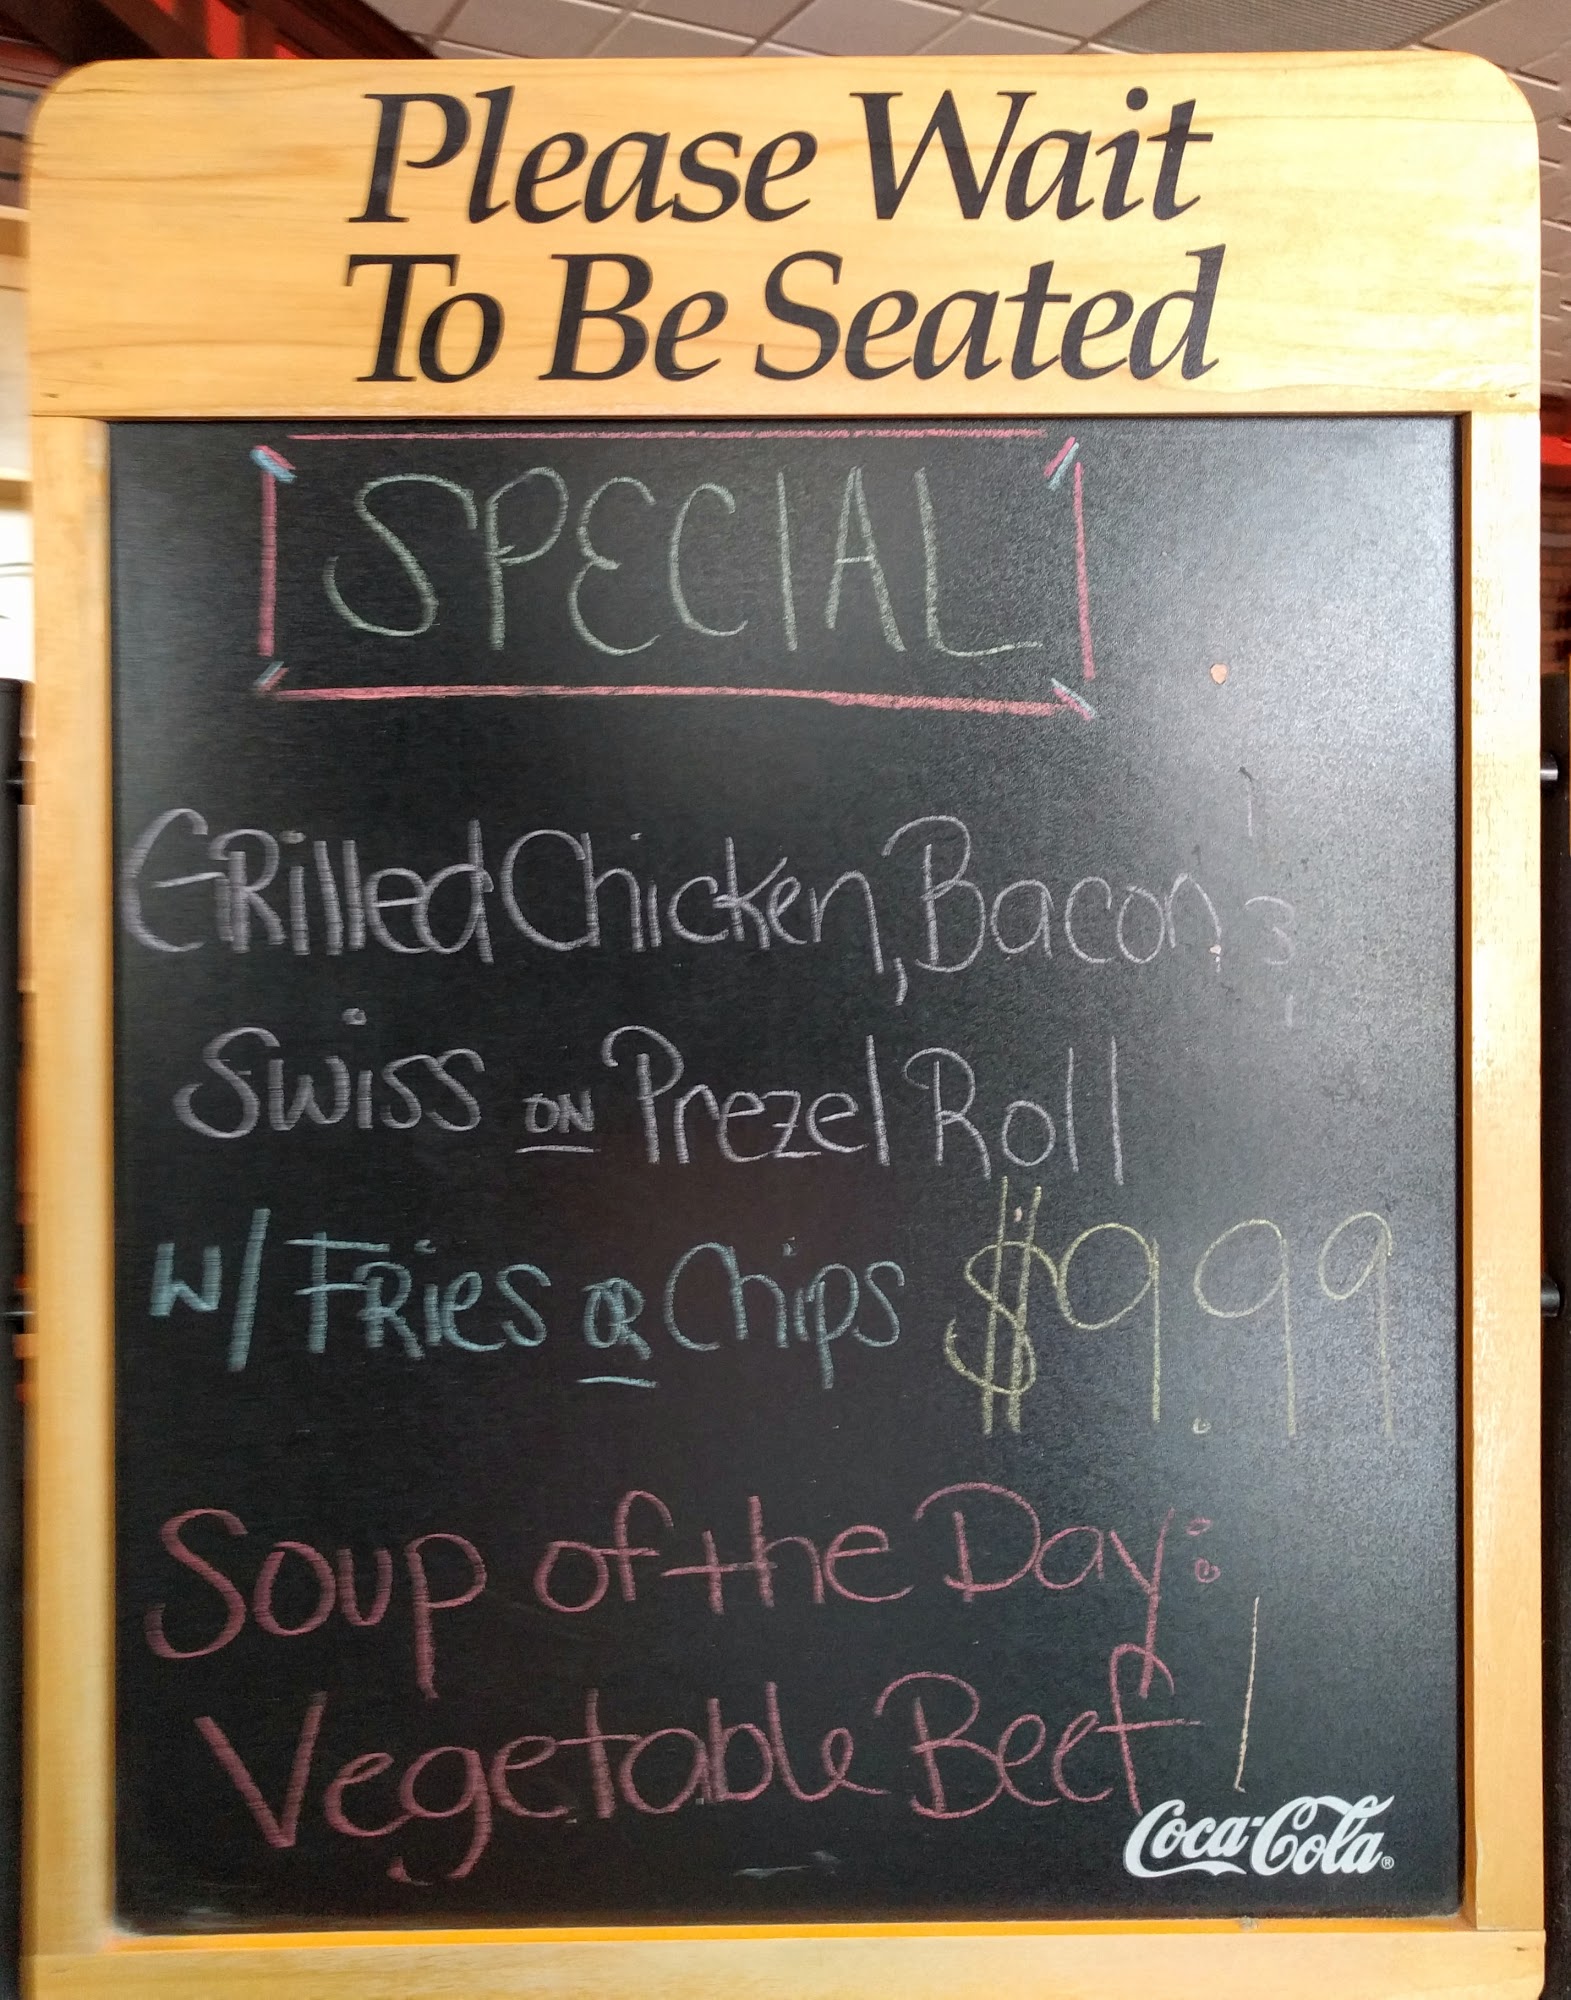 Please Wait
To Be Seated
SPECIAL
GRilled Chicken, Bacon &
Swiss ON Prezel Roll
W/ FRies OR Chips $9.99
Soup of the Day:
Vegetable Beef!
Coca-Cola®